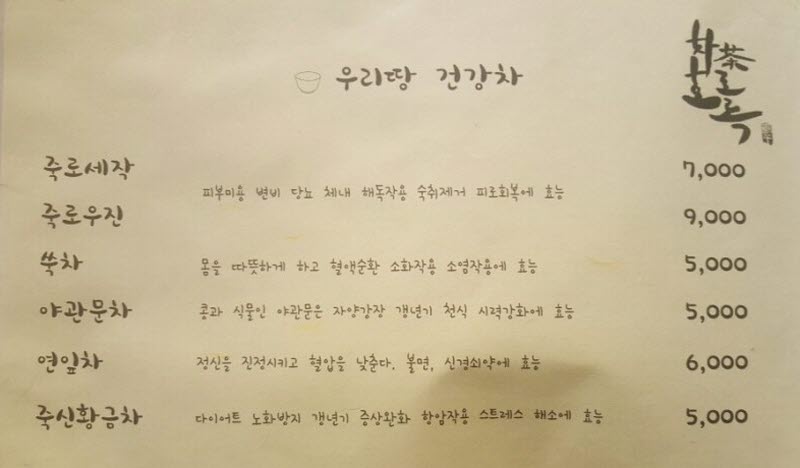 차茶
호로록
우리땅 건강차
죽로세작 7,000
피부미용 변비 당뇨 체내 해독작용 숙취제거 피로회복에 효능
죽로우진 9,000
쑥차 몸을 따뜻하게 하고 혈액순환 소화작용 소염작용에 효능 5,000
야관문차 콩과 식물인 야관문은 자양강장 갱년기 천식 시력강화에 효능 5,000
연잎차 정신을 진정시키고 혈압을 낮춘다. 불면, 신경쇠약에 효능 6,000
죽신황금차 다이어트 노화방지 갱년기 증상완화 항암작용 스트레스 해소에 효능 5,000